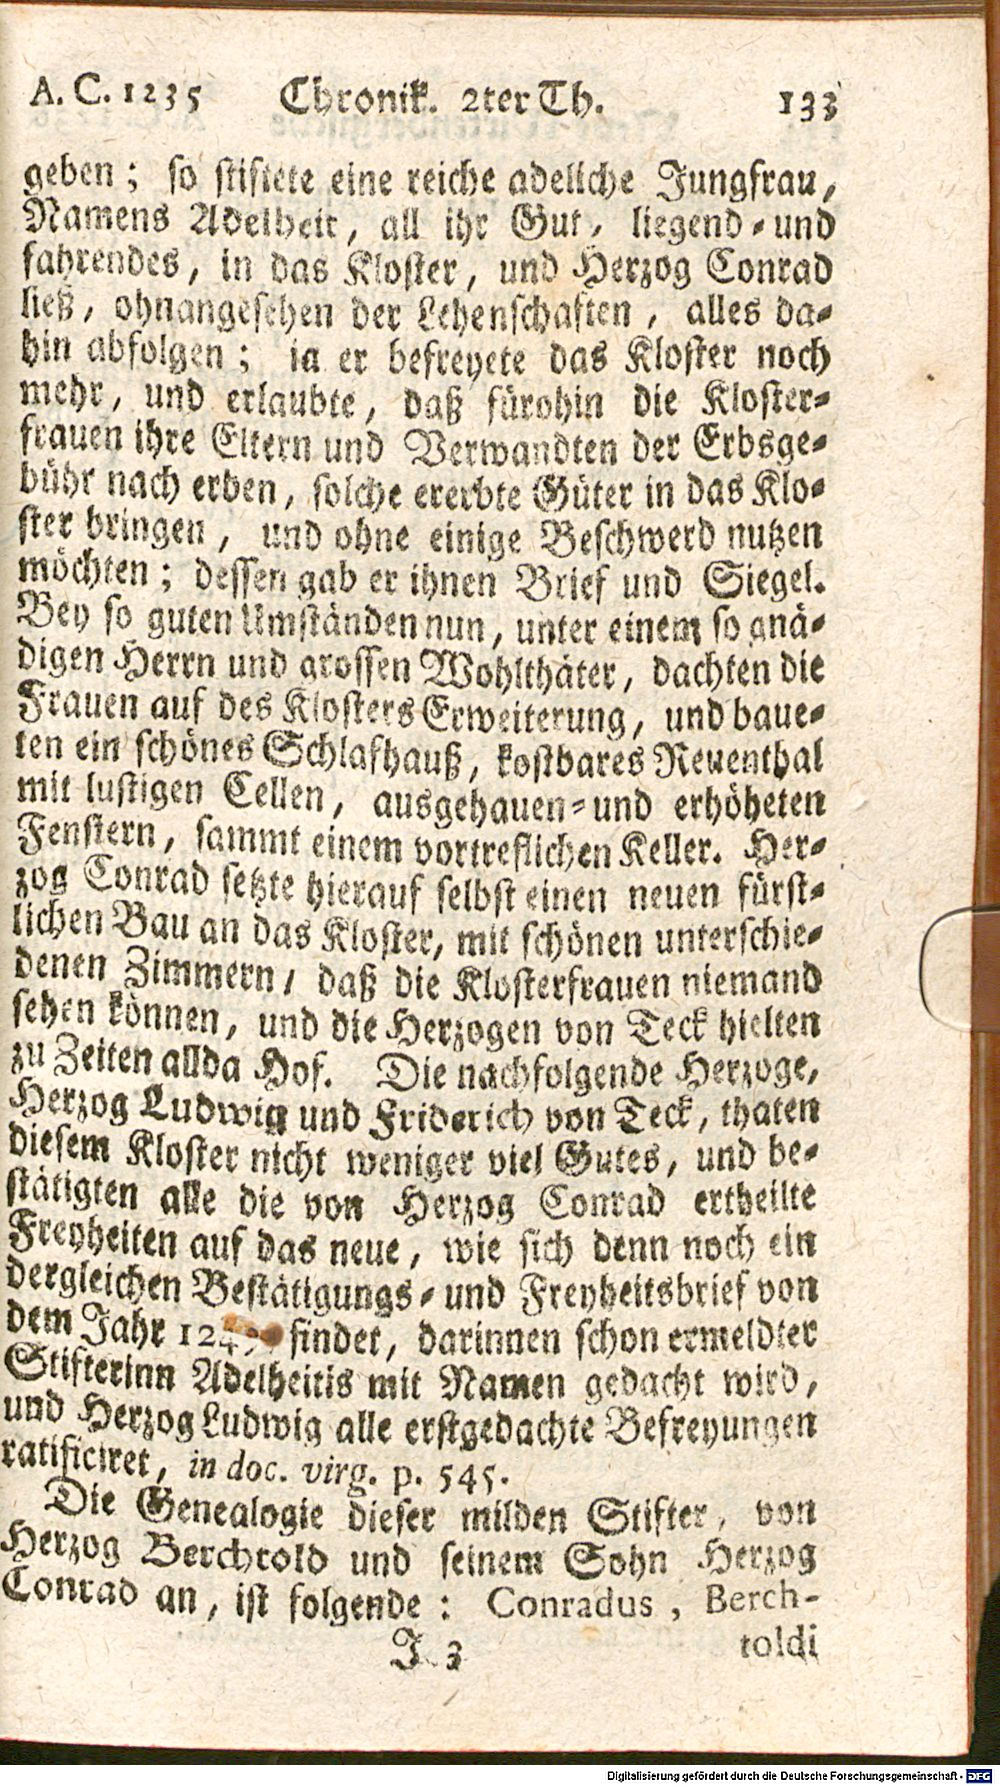 A. C. 1235 Chronik. 2ter Th. 133
geben; so stiftete eine reiche adeliche Jungfrau,
Namens Adelheit, all ihr Gut, liegend-und
fahrendes, in das Kloster, und Herzog Conrad
ließ, ohnangesehen der Lehenschaften, alles da-
hin abfolgen; ia er befreyete das Kloster noch
mehr, und erlaubte, daß fürohin die Kloster-
frauen ihre Eltern und Verwandten der Erbsge-
bühr nach erben, solche ererbte Güter in das Klo-
ster bringen, und ohne einige Beschwerd nutzen
möchten; dessen gab er ihnen Brief und Siegel.
Bey so guten Umständen nun, unter einem so gnä-
digen Herrn und grossen Wohlthäter, dachten die
Frauen auf des Klosters Erweiterung, und baue-
ten ein schönes Schlafhauß, kostbares Reuenthal
mit lustigen Cellen, ausgehauen-und erhöheten
Fenstern, sammt einem vortreflichen Keller. Her-
zog Conrad setzte hierauf selbst einen neuen fürst-
lichen Bau an das Kloster, mit schönen unterschie-
denen Zimmern, daß die Klosterfrauen niemand
sehen können, und die Herzogen von Teck hielten
zu Zeiten allda Hof. Die nachfolgende Herzoge,
Herzog Ludwig und Friderich von Teck, thaten
diesem Kloster nicht weniger viel Gutes, und be-
stätigten alle die von Herzog Conrad ertheilte
Freyheiten auf das neue, wie sich denn noch ein
dergleichen Bestätigungs-und Freyheitsbrief von
dem Jahr findet, darinnen schon ermeldter
Stifterinn Adelheitis mit Namen gedacht wird,
und Herzog Ludwig alle erstgedachte Befreyungen
ratificiret, in doc. virg. p. 545.
Die Genealogie dieser milden Stifter, von
Herzog Berchtold und seinem Sohn Herzog
Conrad an, ist folgende: Conradus, Berch-
J 3 toldi
Digitalisierung gefördert durch die Deutsche Forschungsgemeinschaft - DFG